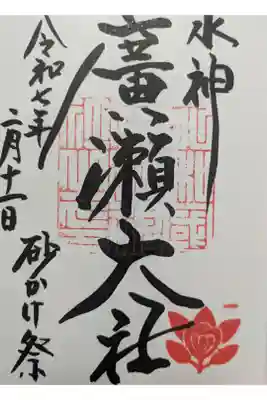 水神
廣瀬大社
砂かけ祭
令和七年
二月十一日